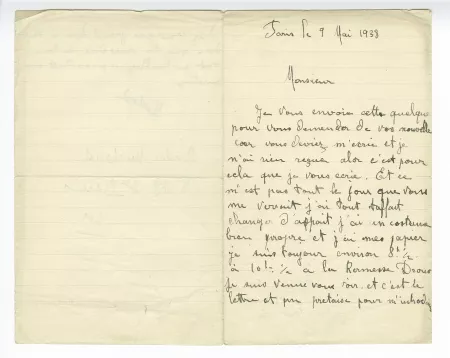 Paris le 9 Mai 1938
Monsieur
Je vous envoie cette quelque
pour vous demender de vos nouvelle
car vous deviez m'ecrie et je
n'ai rien reçue alor c'est pour
cela que je vous ecrie. Et ce
n'est pas tout le jour que vous
me verrait j'ai tout taffait
changer d'appait j'ai un costume
bien propre et j'ai mes papier
je suis toujour environ 8h ½
à 10h ½ a la Kermesse
je suis venue vous voir et c'est le
lettre et pour